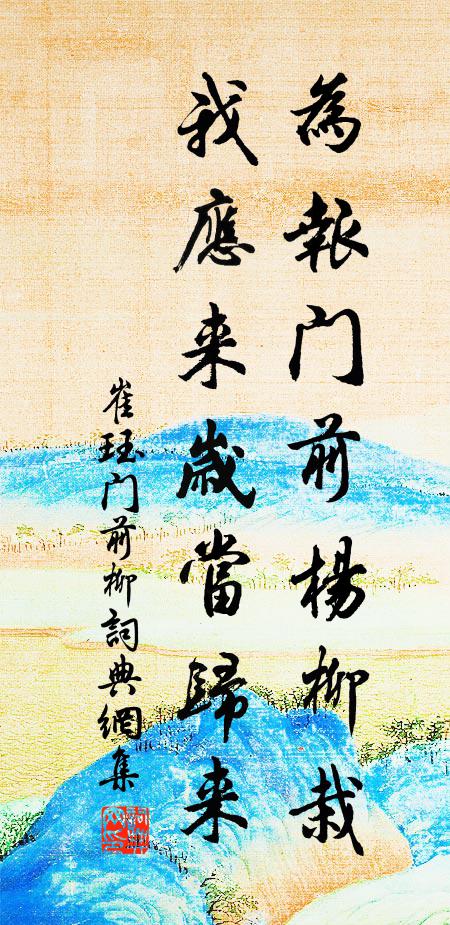 為報門前楊柳栽
我應来歲當歸来
崔珏門前柳詞典網集